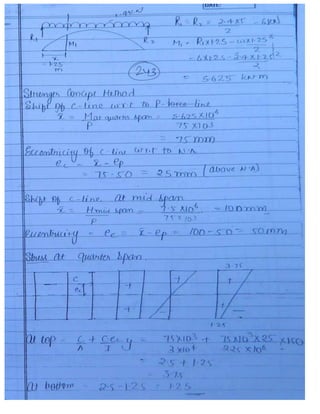 R1 = R2 = 2.4x5 = 6kN
2
R1
R2
M1
x = 1.25 m
M1 = R1x1.25 - wx1.25²
2
= 6x1.25 - 2.4x1.25²
2
= 5.625 kN·m
243
Stress Concept Method
Shift of C-line w.r.t to P-force-line
x̄ = Mat quarter span = 5.625x10⁶
P 75x10³
= 75mm
Eccentricity of C-line w.r.t. to N.A
ec = x̄ - ep
= 75-50 = 25mm (above N.A)
Shift of C-line at mid span
x̄ = Mmid span = 7.5x10⁶ = 100mm
P 75x10³
Eccentricity = ec = x̄ - ep = 100-50 = 50mm
Stress at quarter span.
C
ec
+
+
+
3.75
1.25
At top = C + C ec y = 75x10³ + 75x10³x25 x150
A I 3x10⁴
= 2.5 + 1.25
= 3.75
At bottom = 2.5-1.25 = 1.25